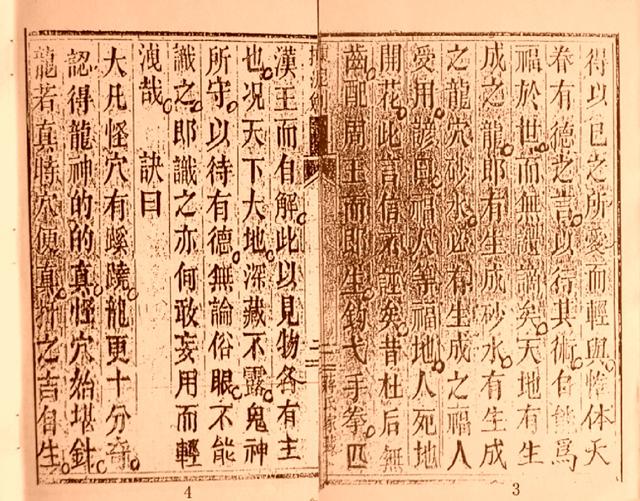 得以已之所愛而輕與。惟体天
眷有德之旨。以行其術。自能爲
福於世。而無譴謫矣。天地有生
成之龍。即有生成砂水。有生成
之龍穴砂水。必有生成之福人
受用。諺曰。福人等福地。人死地
開花。此言信不誣矣。昔杜后無
齒。配周王而即生。鈎弋手拳。匹
3
漢王而自解。此以見物各有主
也。况天下大地。深藏不露。鬼神
所守。以待有德。無論俗眼。不能
識之。即識之。亦何敢妄用而輕
洩哉。 訣曰
大凡怪穴有蹊蹺。龍更十分奇。
認得龍神的的真。怪穴始堪針。
龍若真時穴便真。扦之吉自生。
4